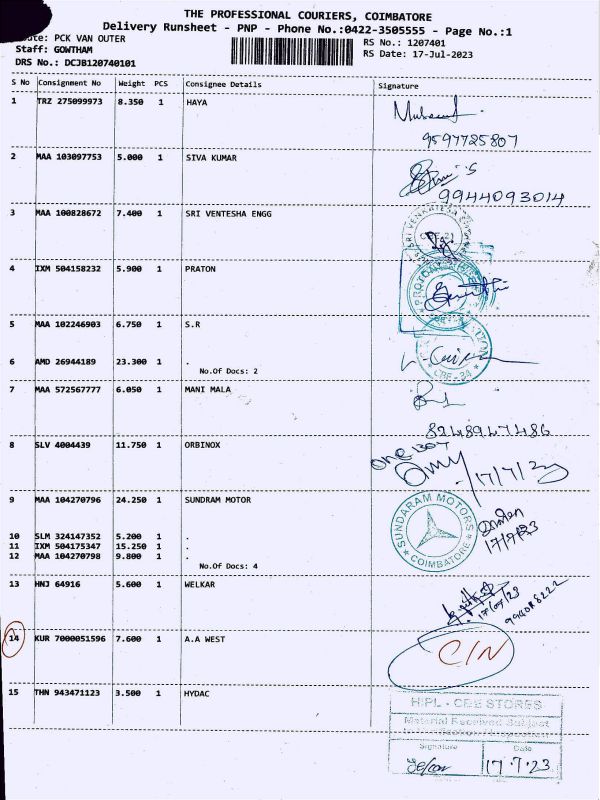 THE PROFESSIONAL COURIERS, COIMBATORE
Delivery Runsheet - PNP - Phone No.:0422-3505555 - Page No.:1
PCK VAN OUTER
RS No.: 1207401
Staff: GOWTHAM
RS Date: 17-Jul-2023
DRS No.: DCJB120740101
S No Consignment No Weight PCS Consignee Details Signature
1 TRZ 275099973 8.350 1 HAYA
9597725807
2 MAA 103097753 5.000 1 SIVA KUMAR
9944093014
3 MAA 100828672 7.400 1 SRI VENTESHA ENGG
4 IXM 504158232 5.900 1 PRATON
5 MAA 102246903 6.750 1 S.R
6 AMD 26944189 23.300 1 .
No.Of Docs: 2
CBE - 24
7 MAA 572567777 6.050 1 MANI MALA
8248947486
8 SLV 4004439 11.750 1 ORBINOX
17/7/23
9 MAA 104270796 24.250 1 SUNDRAM MOTOR
SUNDARAM MOTORS
COIMBATORE
17/7/23
10 SLM 324147352 5.200 1 .
11 IXM 504175347 15.250 1 .
12 MAA 104270798 9.800 1 .
No.Of Docs: 4
13 HNJ 64916 5.600 1 WELKAR
17/07/23
14 KUR 7000051596 7.600 1 A.A WEST
CIN
15 THN 943471123 3.500 1 HYDAC
HIPL - CBE STORES
Material Received Subject
Signature Date
17.7.23